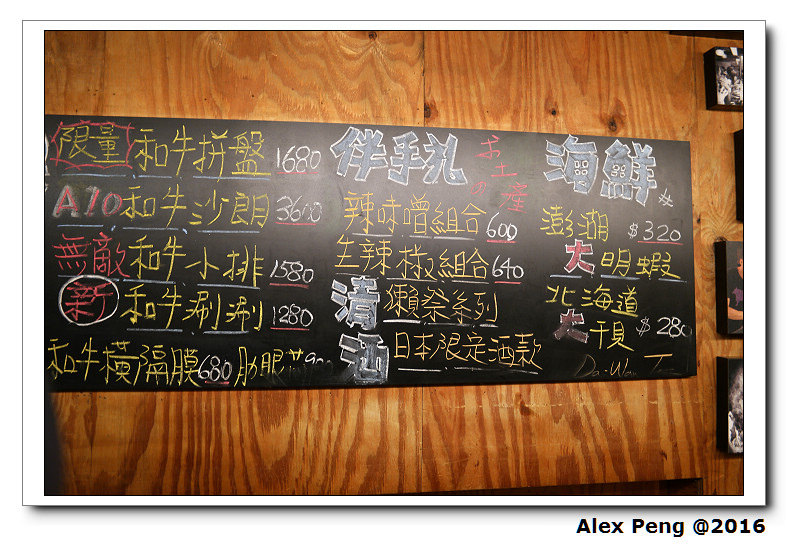 限量 和牛拼盤 1680
A10 和牛沙朗 3600
無敵 和牛小排 1580
新 和牛涮涮 1280
和牛橫隔膜 680 肋眼
伴手礼 お土産
辣味噌組合 600
生辣椒組合 640
清酒
獺祭系列
日本限定酒款
海鮮
澎湖 $320
大明蝦
北海道
大干貝 $280
Alex Peng @2016